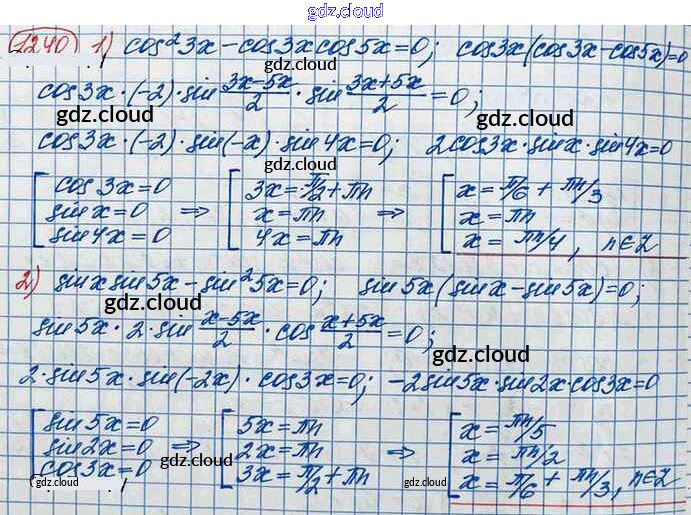 gdz.cloud
1240 1) cos²3x - cos3x cos5x = 0; cos3x(cos3x - cos5x) = 0
gdz.cloud
cos3x · (-2) · sin (3x-5x)/2 · sin (3x+5x)/2 = 0;
gdz.cloud gdz.cloud
cos3x · (-2) · sin(-x) · sin4x = 0; 2cos3x · sinx · sin4x = 0
gdz.cloud
[ cos3x = 0 [ 3x = π/2 + πn [ x = π/6 + πn/3
sinx = 0 ⇒ x = πn ⇒ x = πn
sin4x = 0 4x = πn x = πn/4, n∈Z
gdz.cloud gdz.cloud gdz.cloud
2) sinx sin5x - sin²5x = 0; sin5x(sinx - sin5x) = 0;
gdz.cloud
sin5x · 2 · sin (x-5x)/2 · cos (x+5x)/2 = 0;
gdz.cloud
2 · sin5x · sin(-2x) · cos3x = 0; -2sin5x · sin2x · cos3x = 0
[ sin5x = 0 [ 5x = πn [ x = πn/5
sin2x = 0 ⇒ 2x = πn ⇒ x = πn/2
cos3x = 0 3x = π/2 + πn x = π/6 + πn/3, n∈Z
gdz.cloud gdz.cloud gdz.cloud